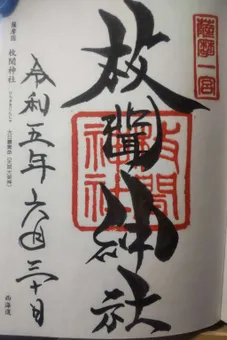 薩摩一宮
枚聞神社
枚聞
神社
薩摩国 枚聞神社 ひらききじんじゃ
令和五年六月三十日
西海道